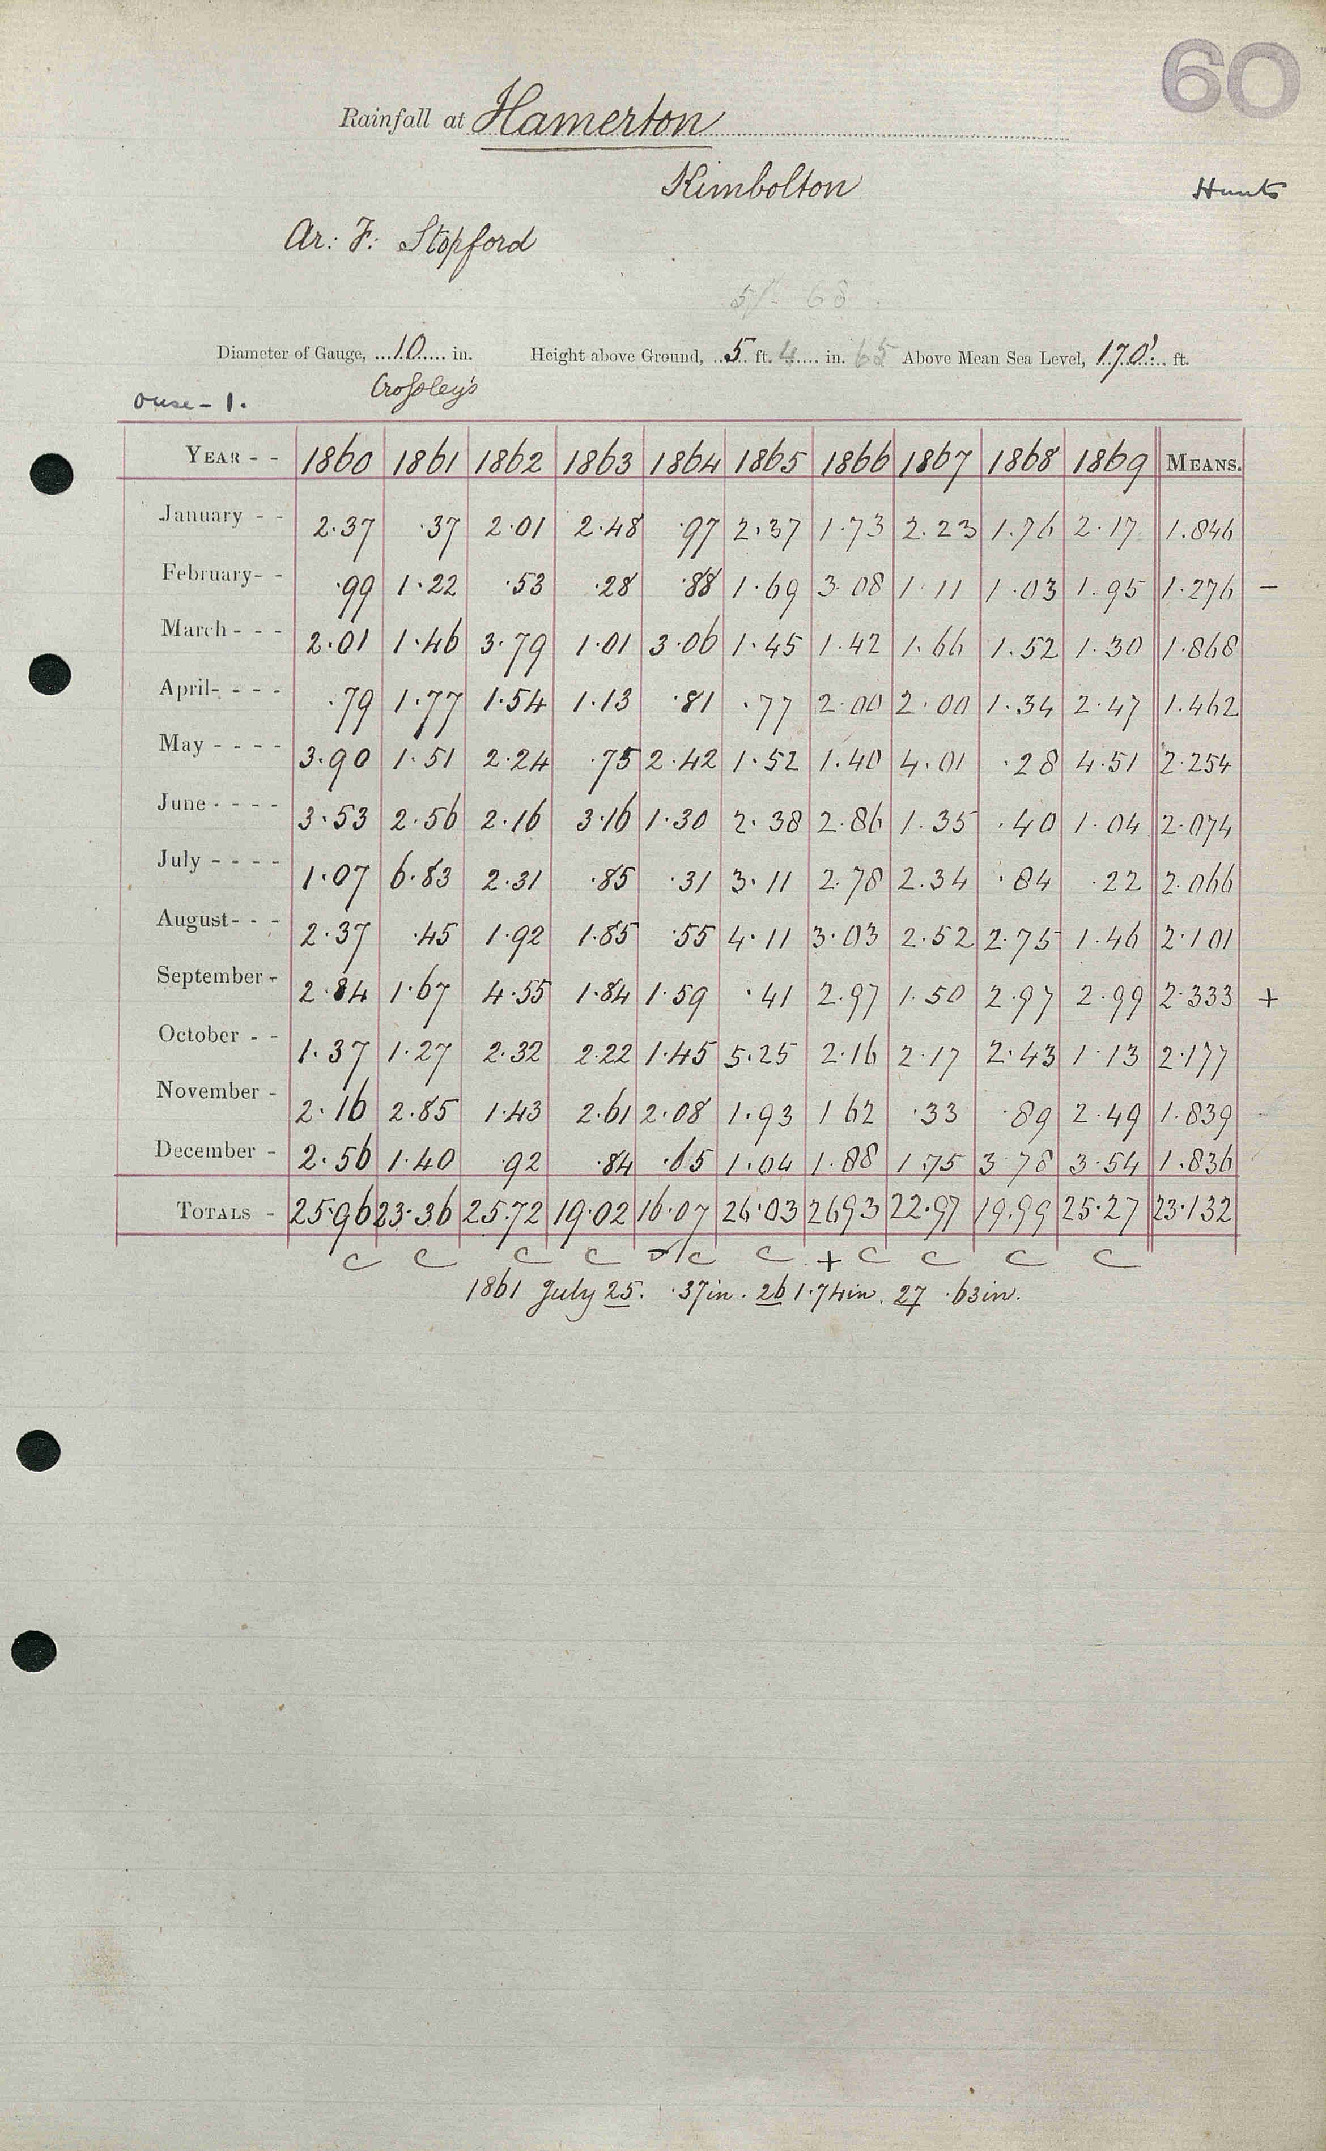 60
Rainfall at Hamerton
Kimbolton Hunts
Ar: F: Stopford
Diameter of Gauge, 10 in. Height above Ground, 5 ft. 4 in. 65 Above Mean Sea Level, 170 ft.
Crossley's
Ouse - 1.
YEAR - - 1860 1861 1862 1863 1864 1865 1866 1867 1868 1869 MEANS.
January - - 2.37 .37 2.01 2.48 .97 2.37 1.73 2.23 1.76 2.17 1.846
February - - .99 1.22 .53 .28 .88 1.69 3.08 1.11 1.03 1.95 1.276 –
March - - - 2.01 1.46 3.79 1.01 3.06 1.45 1.42 1.66 1.52 1.30 1.868
April - - - - .79 1.77 1.54 1.13 .81 .77 2.00 2.00 1.34 2.47 1.462
May - - - - 3.90 1.51 2.24 .75 2.42 1.52 1.40 4.01 .28 4.51 2.254
June - - - - 3.53 2.56 2.16 3.16 1.30 2.38 2.86 1.35 .40 1.04 2.074
July - - - - 1.07 6.83 2.31 .85 .31 3.11 2.78 2.34 .84 .22 2.066
August - - - 2.37 .45 1.92 1.85 .55 4.11 3.03 2.52 2.75 1.46 2.101
September - 2.84 1.67 4.55 1.84 1.59 .41 2.97 1.50 2.97 2.99 2.333 +
October - - 1.37 1.27 2.32 2.22 1.45 5.25 2.16 2.17 2.43 1.13 2.177
November - 2.16 2.85 1.43 2.61 2.08 1.93 1 62 .33 .89 2.49 1.839
December - 2.56 1.40 .92 .84 .65 1.04 1.88 1.75 3 78 3.54 1.836
TOTALS - 25.96 23.36 25.72 19.02 16.07 26.03 2693 22.97 19.99 25.27 23.132
C C C C C C + C C C C
1861 July 25. .37in. 26 1.74in. 27 .63in.